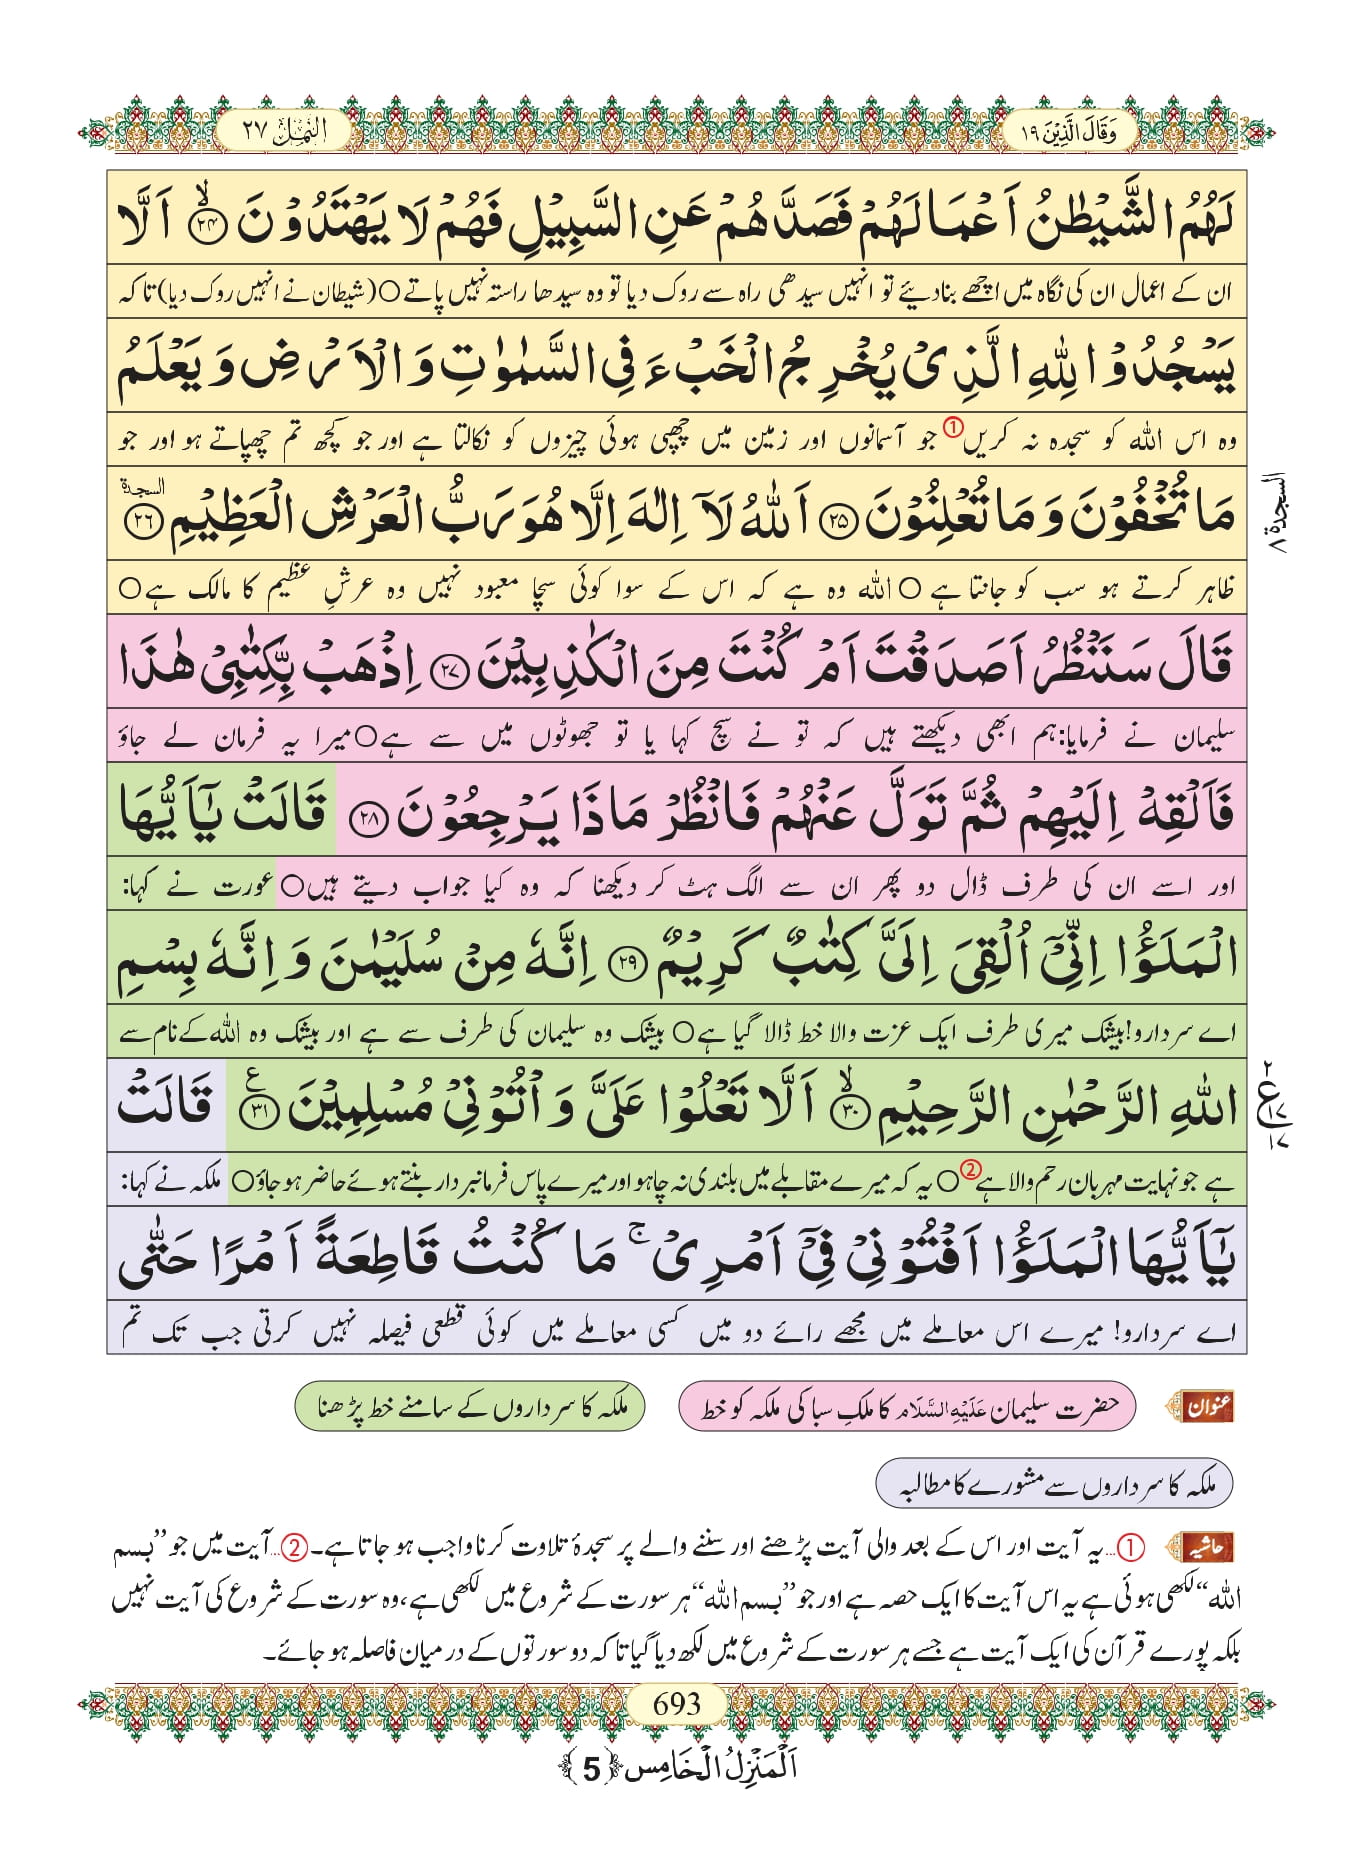 وَقَالَ الَّذِيْنَ ١٩
النَّمْل ٢٧
لَهُمُ الشَّيْطٰنُ اَعْمَالَهُمْ فَصَدَّهُمْ عَنِ السَّبِيْلِ فَهُمْ لَا يَهْتَدُوْنَ ۙ﴿۲۴﴾ اَلَّا
ان کے اعمال ان کی نگاہ میں اچھے بنادیئے تو انہیں سیدھی راہ سے روک دیا تو وہ سیدھا راستہ نہیں پاتے○(شیطان نے انہیں روک دیا) تاکہ
يَسْجُدُوْا لِلّٰهِ الَّذِیْ يُخْرِجُ الْخَبْءَ فِی السَّمٰوٰتِ وَالْاَرْضِ وَيَعْلَمُ
وہ اس اللہ کو سجدہ نہ کریں① جو آسمانوں اور زمین میں چھپی ہوئی چیزوں کو نکالتا ہے اور جو کچھ تم چھپاتے ہو اور جو
مَا تُخْفُوْنَ وَمَا تُعْلِنُوْنَ ﴿۲۵﴾ اَللّٰهُ لَاۤ اِلٰهَ اِلَّا هُوَ رَبُّ الْعَرْشِ الْعَظِيْمِ ﴿۲۶﴾ السجدة
السجدة ٨
ظاہر کرتے ہو سب کو جانتا ہے ○ اللہ وہ ہے کہ اس کے سوا کوئی سچا معبود نہیں وہ عرشِ عظیم کا مالک ہے○
قَالَ سَنَنْظُرُ اَصَدَقْتَ اَمْ كُنْتَ مِنَ الْكٰذِبِيْنَ ﴿۲۷﴾ اِذْهَبْ بِّكِتٰبِیْ هٰذَا
سلیمان نے فرمایا:ہم ابھی دیکھتے ہیں کہ تو نے سچ کہا یا تو جھوٹوں میں سے ہے○میرا یہ فرمان لے جاؤ
فَاَلْقِهْ اِلَيْهِمْ ثُمَّ تَوَلَّ عَنْهُمْ فَانْظُرْ مَاذَا يَرْجِعُوْنَ ﴿۲۸﴾ قَالَتْ يٰۤاَيُّهَا
اور اسے ان کی طرف ڈال دو پھر ان سے الگ ہٹ کر دیکھنا کہ وہ کیا جواب دیتے ہیں○ عورت نے کہا:
الْمَلَؤُا اِنِّیْۤ اُلْقِیَ اِلَیَّ كِتٰبٌ كَرِيْمٌ ﴿۲۹﴾ اِنَّهٗ مِنْ سُلَيْمٰنَ وَاِنَّهٗ بِسْمِ
اے سردارو!بیشک میری طرف ایک عزت والا خط ڈالا گیا ہے○ بیشک وہ سلیمان کی طرف سے ہے اور بیشک وہ اللہ کے نام سے
اللّٰهِ الرَّحْمٰنِ الرَّحِيْمِ ۙ﴿۳۰﴾ اَلَّا تَعْلُوْا عَلَیَّ وَاْتُوْنِیْ مُسْلِمِيْنَ ﴿۳۱﴾ ع قَالَتْ
٢ ع ١٧ ١٧
ہے جو نہایت مہربان رحم والا ہے②○ یہ کہ میرے مقابلے میں بلندی نہ چاہو اور میرے پاس فرمانبردار بنتے ہوئے حاضر ہوجاؤ○ ملکہ نے کہا:
يٰۤاَيُّهَا الْمَلَؤُا اَفْتُوْنِیْ فِیْۤ اَمْرِیْ ۚ مَا كُنْتُ قَاطِعَةً اَمْرًا حَتّٰی
اے سردارو! میرے اس معاملے میں مجھے رائے دو میں کسی معاملے میں کوئی قطعی فیصلہ نہیں کرتی جب تک تم
عنوان حضرت سلیمان عَلَيْهِ السَّلَام کا ملکِ سبا کی ملکہ کو خط ملکہ کا سرداروں کے سامنے خط پڑھنا
ملکہ کا سرداروں سے مشورے کا مطالبہ
حاشیہ ①…یہ آیت اور اس کے بعد والی آیت پڑھنے اور سننے والے پر سجدۂ تلاوت کرنا واجب ہو جاتا ہے۔ ②…آیت میں جو ”بسم
اللہ“ لکھی ہوئی ہے یہ اس آیت کا ایک حصہ ہے اور جو ”بسم اللہ“ ہر سورت کے شروع میں لکھی ہے، وہ سورت کے شروع کی آیت نہیں
بلکہ پورے قرآن کی ایک آیت ہے جسے ہر سورت کے شروع میں لکھ دیا گیا تاکہ دو سورتوں کے درمیان فاصلہ ہو جائے۔
693
اَلْمَنْزِلُ الْخَامِس ﴿5﴾